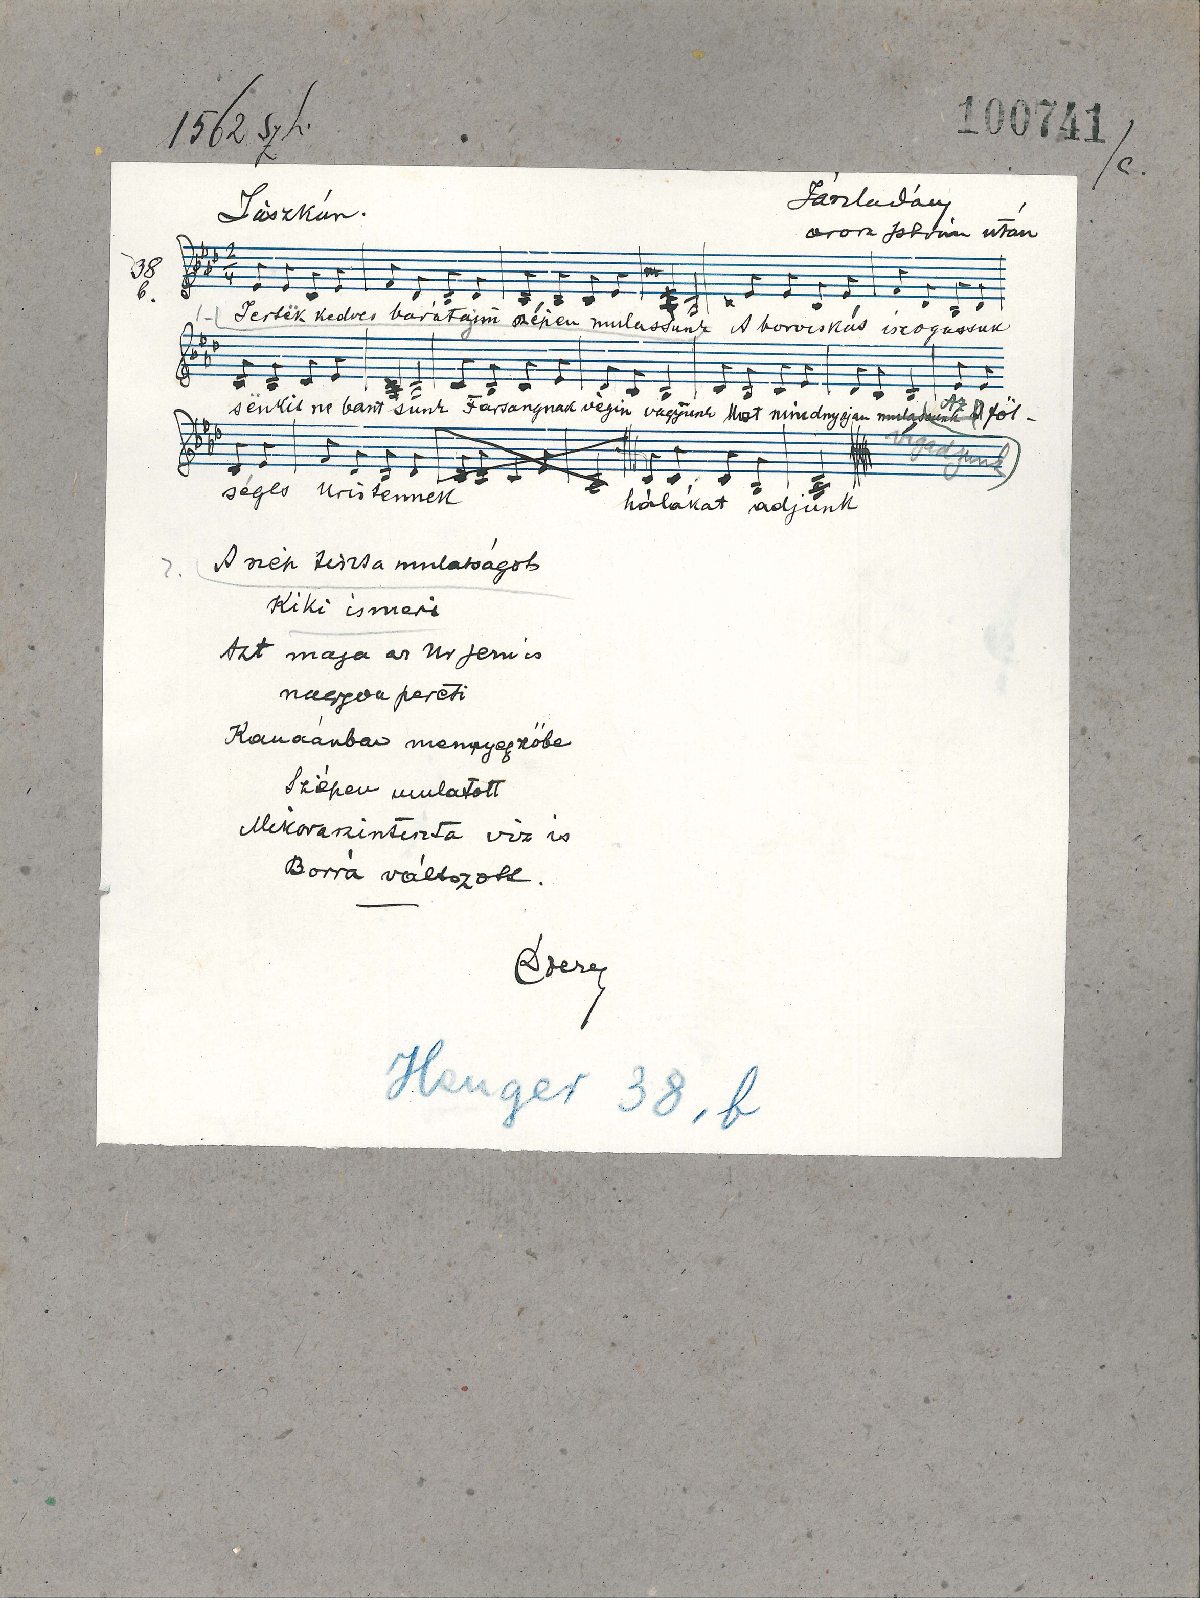 1562 Szh.
100741/c.
Jászkún.
Jászladány
orosz István után
38
b.
2/4
1. Jertëk kedves barátajim szépen mulassunk A borocskás iszogassuk
sënkit ne bant sunk Farsangnak végin vagyunk Most mindnyájan mulassunk Az föl-
vigadjunk
séges Uristennek hálákat adjunk
2. A szép tiszta mulatságot
Kiki ismeri
Azt maja az Ur Jezus is
nagyon
Kanaánban mennyegzőbe
Szépen mulatott
Mikoraszintiszta viz is
Borrá változott.
Henger 38, b